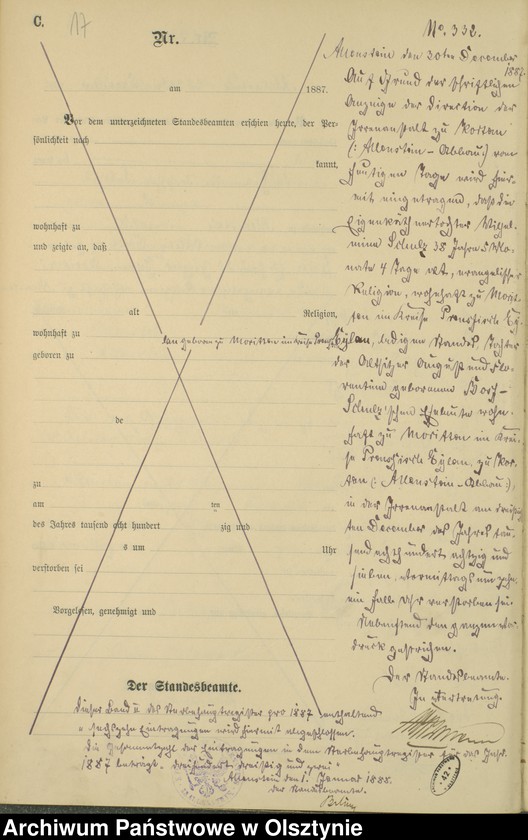 C.
17
Nr.
am 1887.
Vor dem unterzeichneten Standesbeamten erschien heute, der Per-
sönlichkeit nach
kannt,
wohnhaft zu
und zeigte an, daß
alt Religion,
wohnhaft zu
geboren zu
de
zu
am ten
des Jahres tausend acht hundert zig und
s um Uhr
verstorben sei
Vorgelesen, genehmigt und
Der Standesbeamte.
No. 332.
Allenstein den 30ten December
1887.
Auf Grund der schriftlichen
Anzeige der Direction der
Irrenanstalt zu Kortau
(: Allenstein - Abbau:) vom
heutigen Tage wird hier-
mit eingetragen, daß die
Eigenkäthnertochter Wilhel-
mine Schulz 38 Jahre 5 Mo-
nate 4 Tage alt, evangelischer
Religion, wohnhaft zu Morit-
ten im Kreise Preussisch Ey-
lau geboren zu Moritten im Kreise Preuß. Eylau, ledigen Standes Tochter
der Altsitzer August und Flo-
rentine geborenen
Schulz'schen Eheleute wohn-
haft zu Moritten im Krei-
se Preussisch Eylau, zu Kor-
tau (: Allenstein - Abbau:),
in der Irrenanstalt am
ten December des Jahres tau-
send acht hundert achtzig und
sieben, Vormittags um zehn
ein halb Uhr verstorben sei.
Nebenstend den ganzen Vor-
druck gestrichen.
Der Standesbeamte.
In Vertretung.
Dieser Band des Sterbehauptregister pro 1887 enthaltend
sechszehn Eintragungen wird hiermit abgeschlossen.
Die Gesammtzahl der Eintragungen in dem Sterbehauptregister für das Jahr
1887 beträgt dreihundert dreißig und zwei
Allenstein den 1. Januar 1888.
der Standesbeamte.
Archiwum Państwowe w Olsztynie